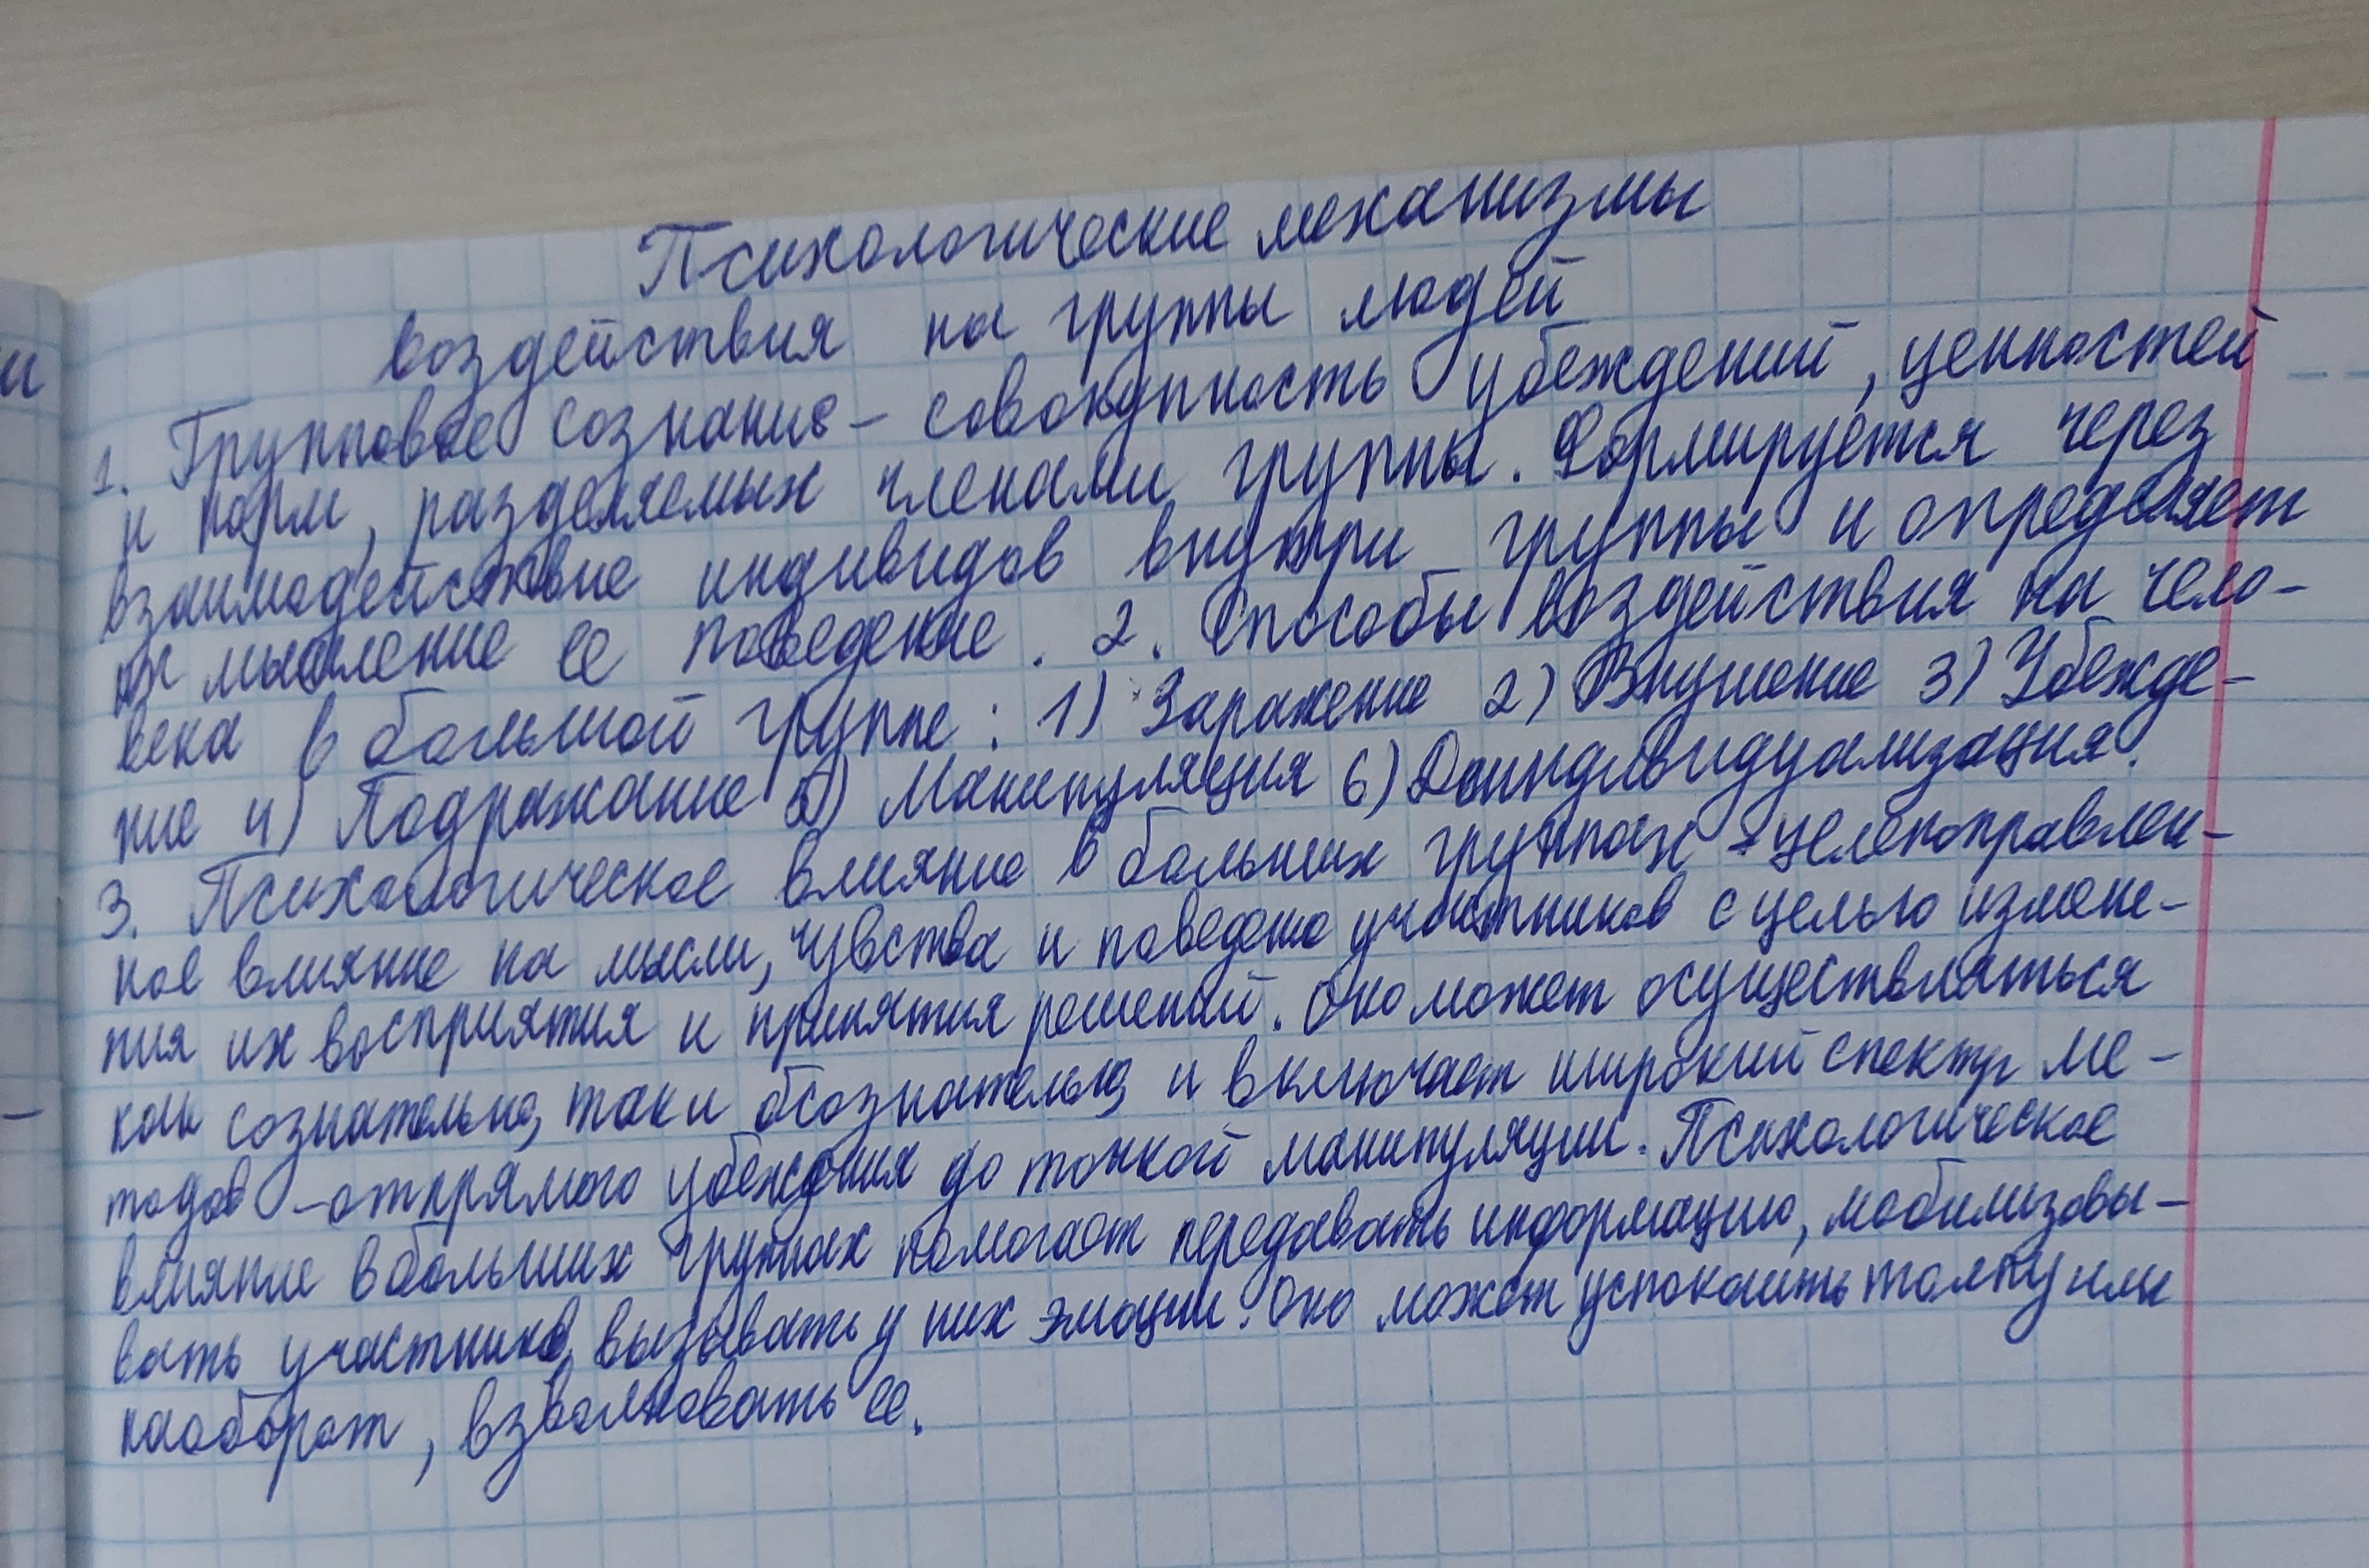 Психологические механизмы
воздействия на группы людей
1. Групповое сознание – совокупность убеждений, ценностей
и норм, разделяемых членами группы. Формируется через
взаимодействие индивидов внутри группы и определяет
мышление ее поведение. 2. Способы воздействия на чело-
века в большой группе: 1) Заражение 2) Внушение 3) Убежде-
ние 4) Подражание 5) Манипуляция 6) Деиндивидуализация.
3. Психологическое влияние в больших группах – целенаправлен-
ное влияние на мысли, чувства и поведение участников с целью измене-
ния их восприятия и принятия решений. Оно может осуществляться
как сознательно, так и бсознательно, и включает широкий спектр ме-
тодов – от прямого убеждения до тонкой манипуляции. Психологическое
влияние в больших группах помогает передавать информацию, мобилизовы-
вать участников, вызывать у них эмоции. Оно может успокоить толпу или
наоборот, взволновать ее.